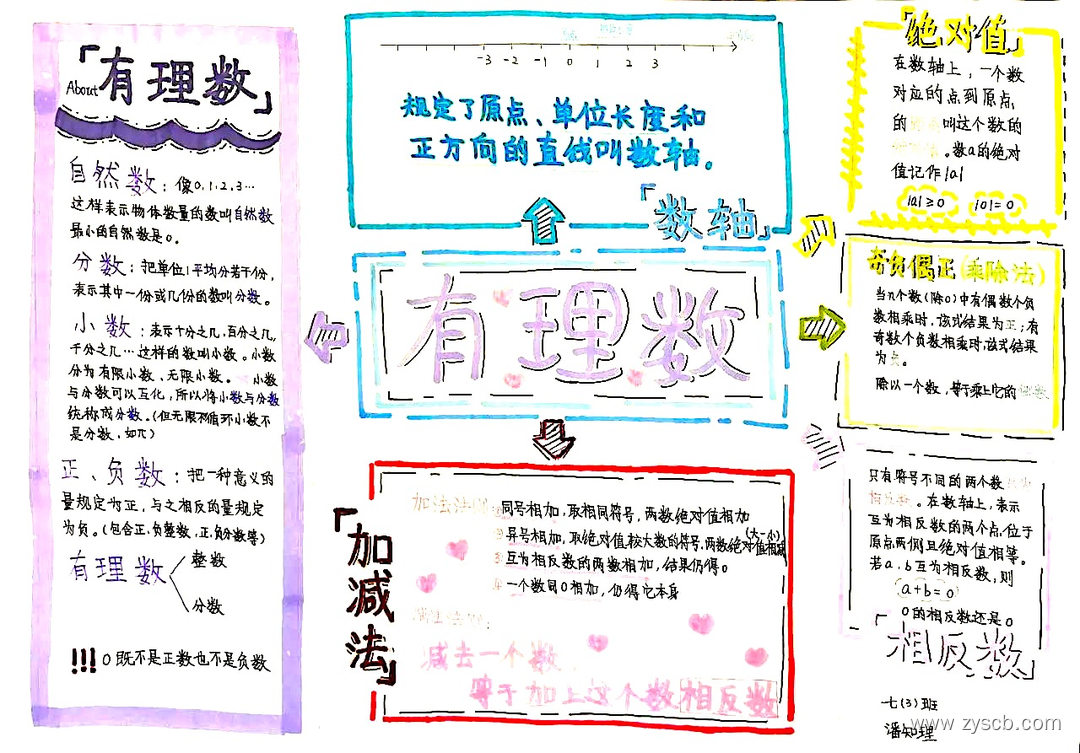 About「有理数」
自然数：像0.1.2.3…
这样表示物体数量的数叫自然数
最小的自然数是0。
分数：把单位1平均分若干份，
表示其中一份或几份的数叫分数。
小数：表示十分之几，百分之几，
千分之几…这样的数叫小数。小数
分为有限小数、无限小数。小数
与分数可以互化，所以将小数与分数
统称成分数。（但无限不循环小数不
是分数，如π）
正、负数：把一种意义的
量规定为正，与之相反的量规定
为负。（包含正.负整数，正.负分数等）
有理数
整数
分数
!!!0既不是正数也不是负数
-3 -2 -1 0 1 2 3
规定了原点、单位长度和
正方向的直线叫数轴。
「数轴」
有理数
「加减法」
加法法则：
①同号相加，取相同符号，两数绝对值相加
②异号相加，取绝对值较大数的符号，两数绝对值相减
（大-小）
③互为相反数的两数相加，结果仍得0
④一个数同0相加，仍得它本身
减法法则：
减去一个数，
等于加上这个数相反数
「绝对值」
在数轴上，一个数
对应的点到原点
的 叫这个数的
。数a的绝对
值记作|a|
|a|≥0 |0|=0
奇负偶正（乘除法）
当n个数（除0）中有偶数个负
数相乘时，该式结果为正；有
奇数个负数相乘时，该式结果
为负。
除以一个数，等于乘上它的
只有符号不同的两个数
相反数。在数轴上，表示
互为相反数的两个点，位于
原点两侧且绝对值相等。
若a，b互为相反数，则
a+b=0
0的相反数还是0
「相反数」
七(3)班
潘知理
www.zyscb.com